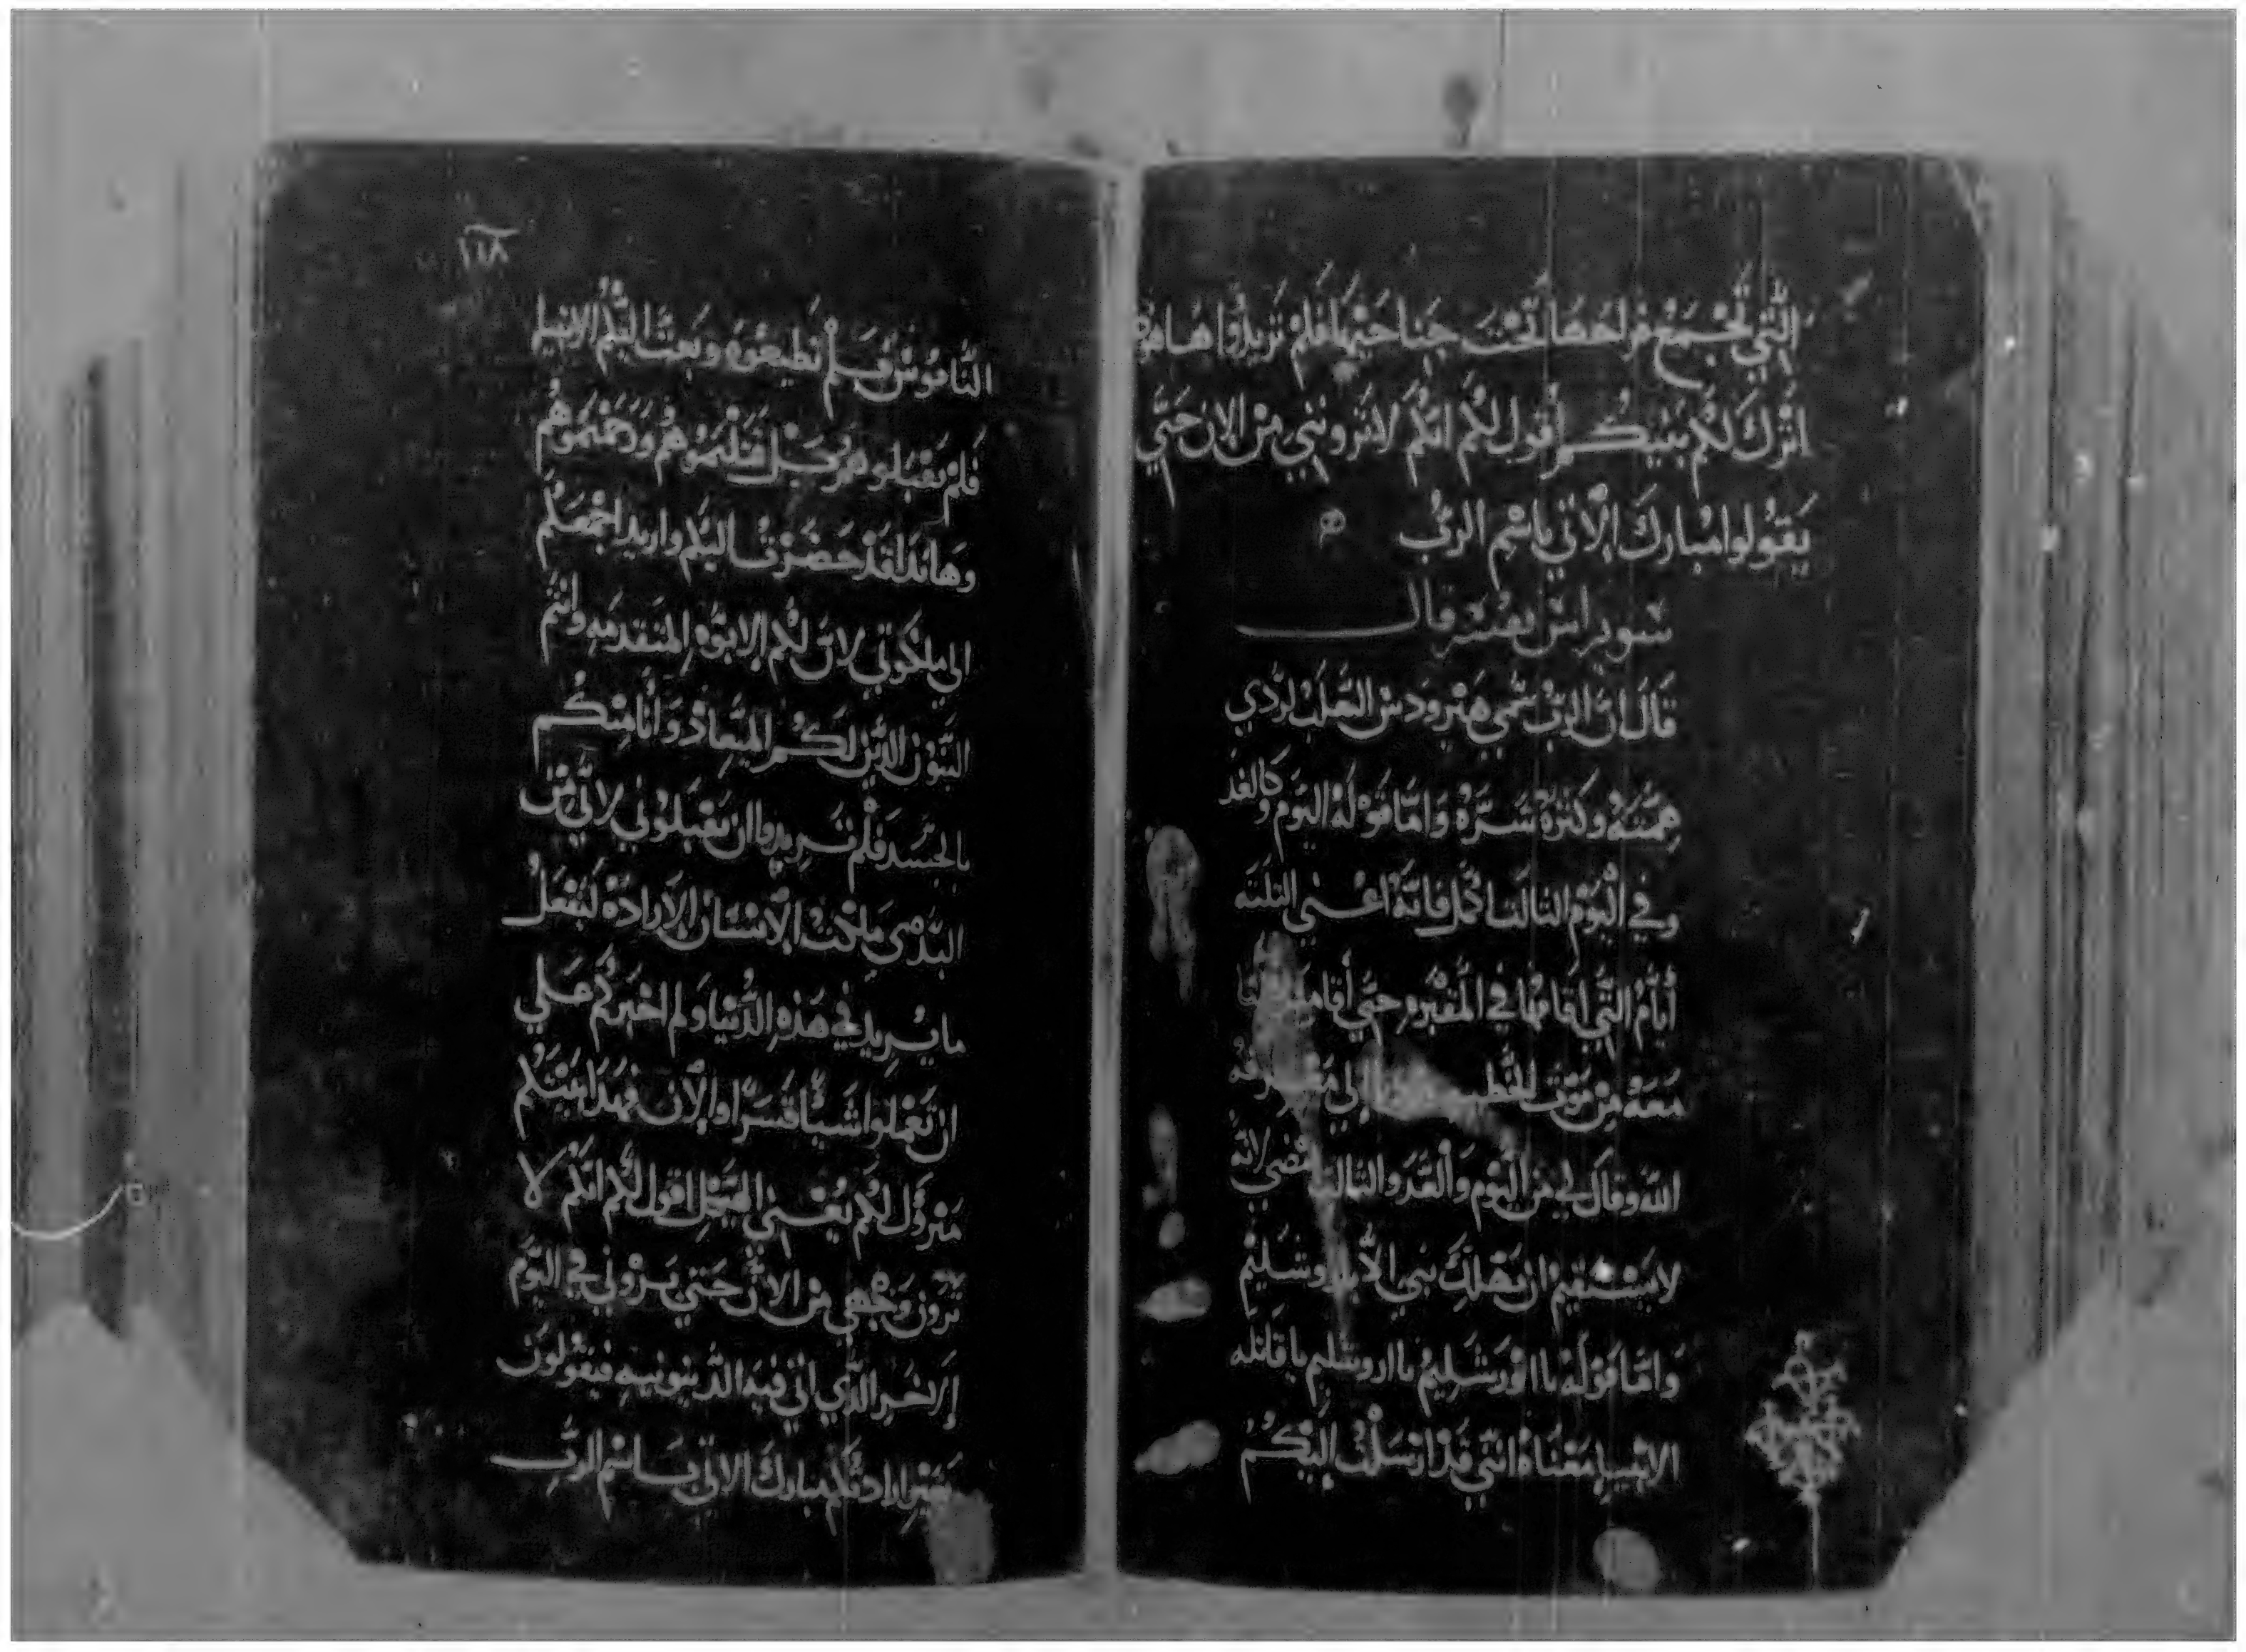 الَّتي تَجْمَعُ فراخهَا تَحْتَ جَناحَيْهَا فَلَمْ تَريدُوا هَا هوذا
اتْرُكَ لكُم بَيْتكُم أقول لكُم انكُم لا تَروننِي مِن الان حَتَّي
يَقولوا مبارَك الآتي باسْم الربُّ
سويرس يفسر قال
قَالَ انَّ الربُّ سُمّي هَيْرودس الثعْلَب لردي
هِمَّتهُ وكَثرَة شَرَّهُ وَامّا قَوْلهُ اليَوم وَكَالغَد
وفي اليَوْم الثالث اكمل فانّهُ اعْني الثلثه
أيّامُ الَّتي اقامهَا في المقبره حِتَّي أقامنا
مَعَهُ مِنْ مَوْت الخَطيه الي
الله وقال لي مِن اليَوْم والغَدَ والثالث امْضي لانّه
لا يَسْتَقيمْ ان يَهْلِكَ نبي الّا بايروشَليْم
وامّا قَوْلهُ يا اوْرَشَليمُ يا اروشليم يا قاتله
الانْبيا مَعْنَاهُ انّني قَدْ ارْسَلْتُ إلَيْكُمْ
١١٨
النّامُوسْ فَلَمْ تُطيعُوه وبَعثت اليْكُم الانبيا
فَلَمْ تقْبَلوهُمْ بَلْ قتَلْتموهُم ورَجَمْتمُوهُم
وهَانذا لقَدْ حَضَرْتُ اليكُم واريد اجْمعَكُم
الي مَلكوتي لانّ لكُم الابوّه المتقدمَه وانْتُم
البَنُوْن الذيْن لَكُم الميْعادْ وَانَا مِنكُم
بالجسَد فَلَمْ تريدوا ان تَقْبَلوُني لانّي مِن
البَدي مَلكت الانْسَان الارادَه لَيَفْعَلْ
ما يُريد في هَذهِ الدُّنيا وَلم اخْبرْكُم عَلي
ان تَعْملوا شَيئًا قَسَرًا والآن فهَذا بَيْتكُم
مَتروُك لكُم يُعْني الهَيْكل اقول لكُم انكُم لا
تَرون وَجْهي مِن الانْ حَتي تَرَوْني في اليَوْم
الاخَير الذّي اتي فيهِ الدّينونيه فيقولون
بغير ارادتكُم مبارك الاتي باسْم الرَّب